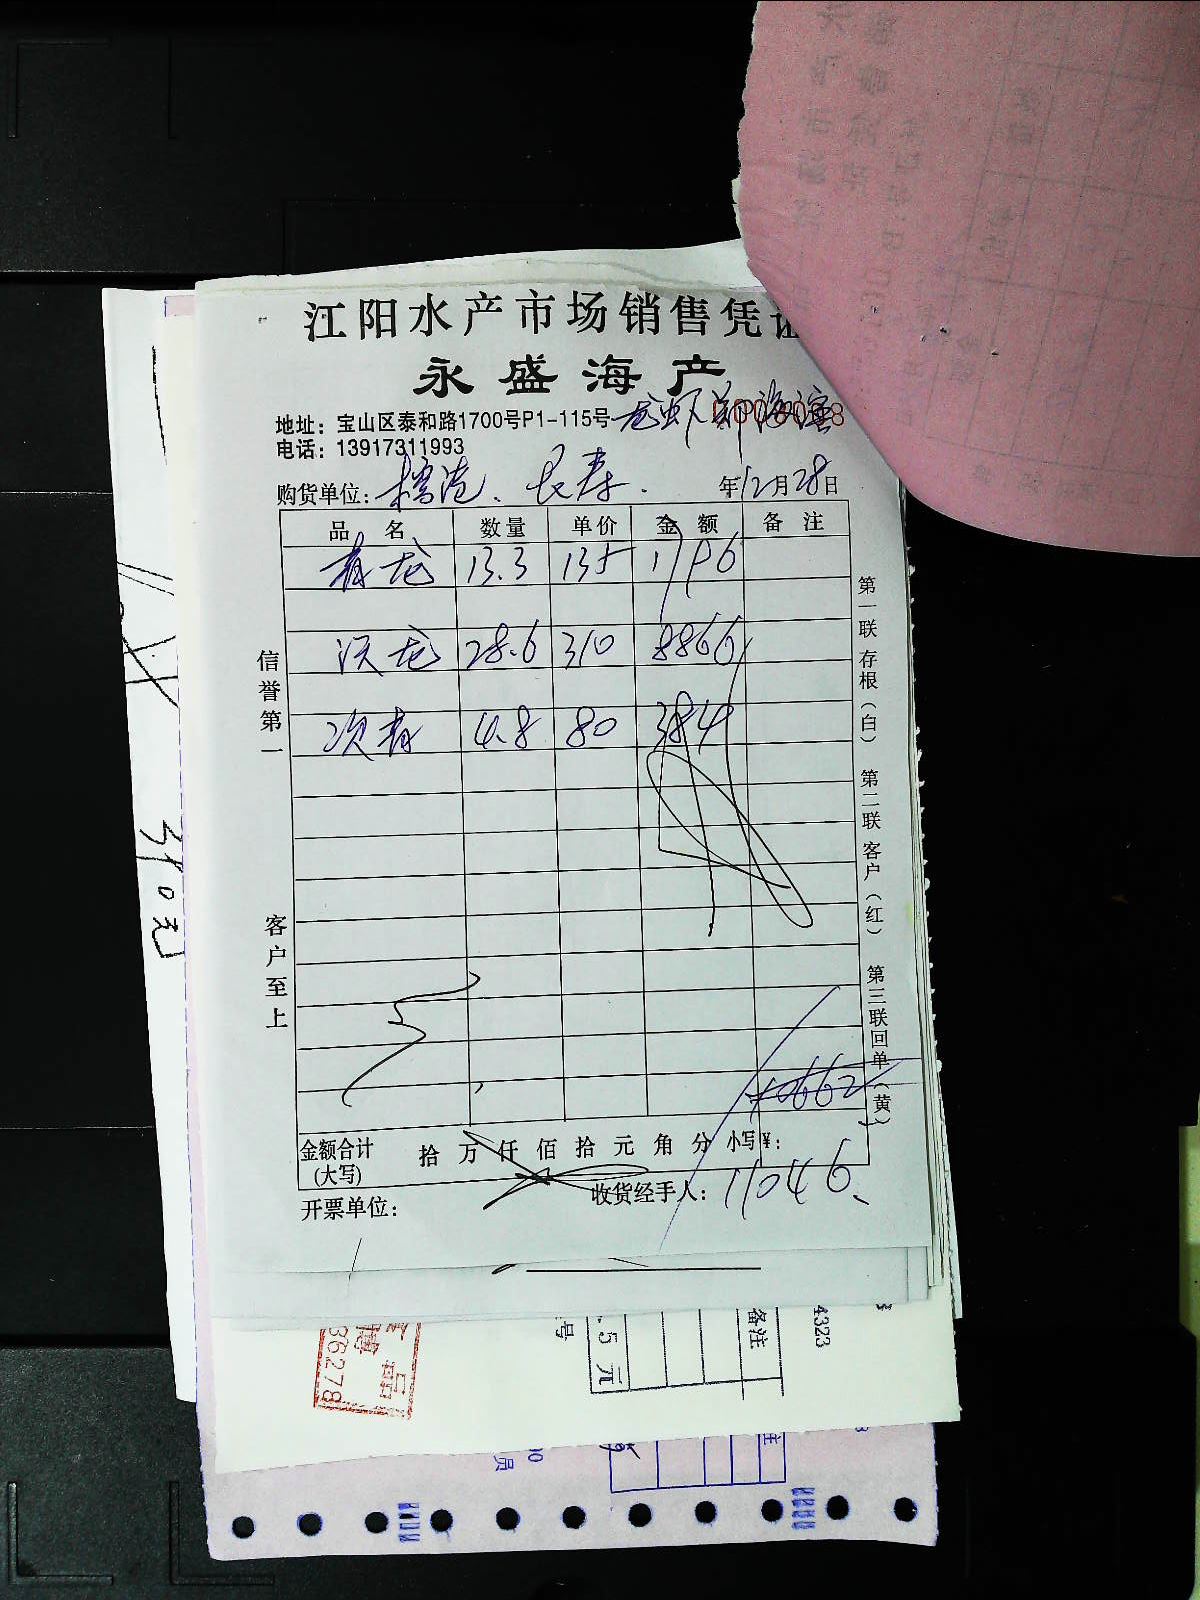 江阳水产市场销售凭
永盛海产
地址：宝山区泰和路1700号P1-115号
龙虾
电话：13917311993
购货单位： 长寿. 年12月28日
品 名 数量 单价 金 额 备 注
青龙 13.3 135 1796
沃龙 28.6 310 8866
次青 4.8 80 384
信誉第一
客户至上
第一联 存根（白） 第二联 客户（红） 第三联 回单（黄）
10662
金额合计(大写) 拾 万 仟 佰 拾 元 角 分 小写¥：
11046
开票单位： 收货经手人：
310元
备注
.5 元
号
4323
36278
注
00
员